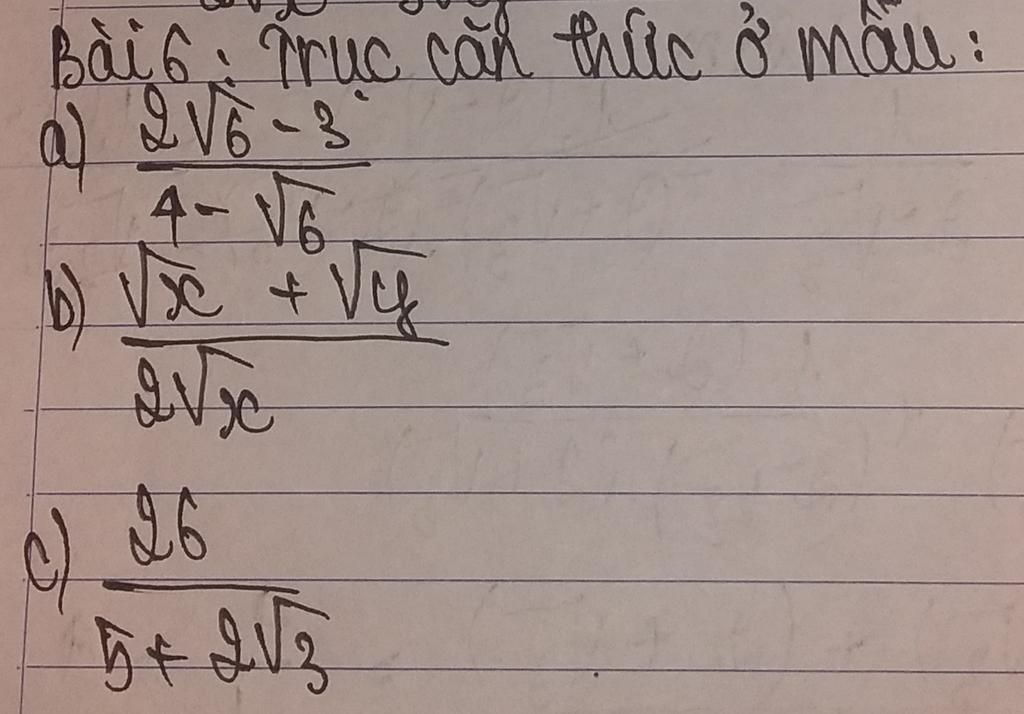 Bài 6: Trục căn thức ở mẫu:
a) 2√6 - 3
4 - √6
b) √x + √y
2√x
c) 26
5 + 2√3